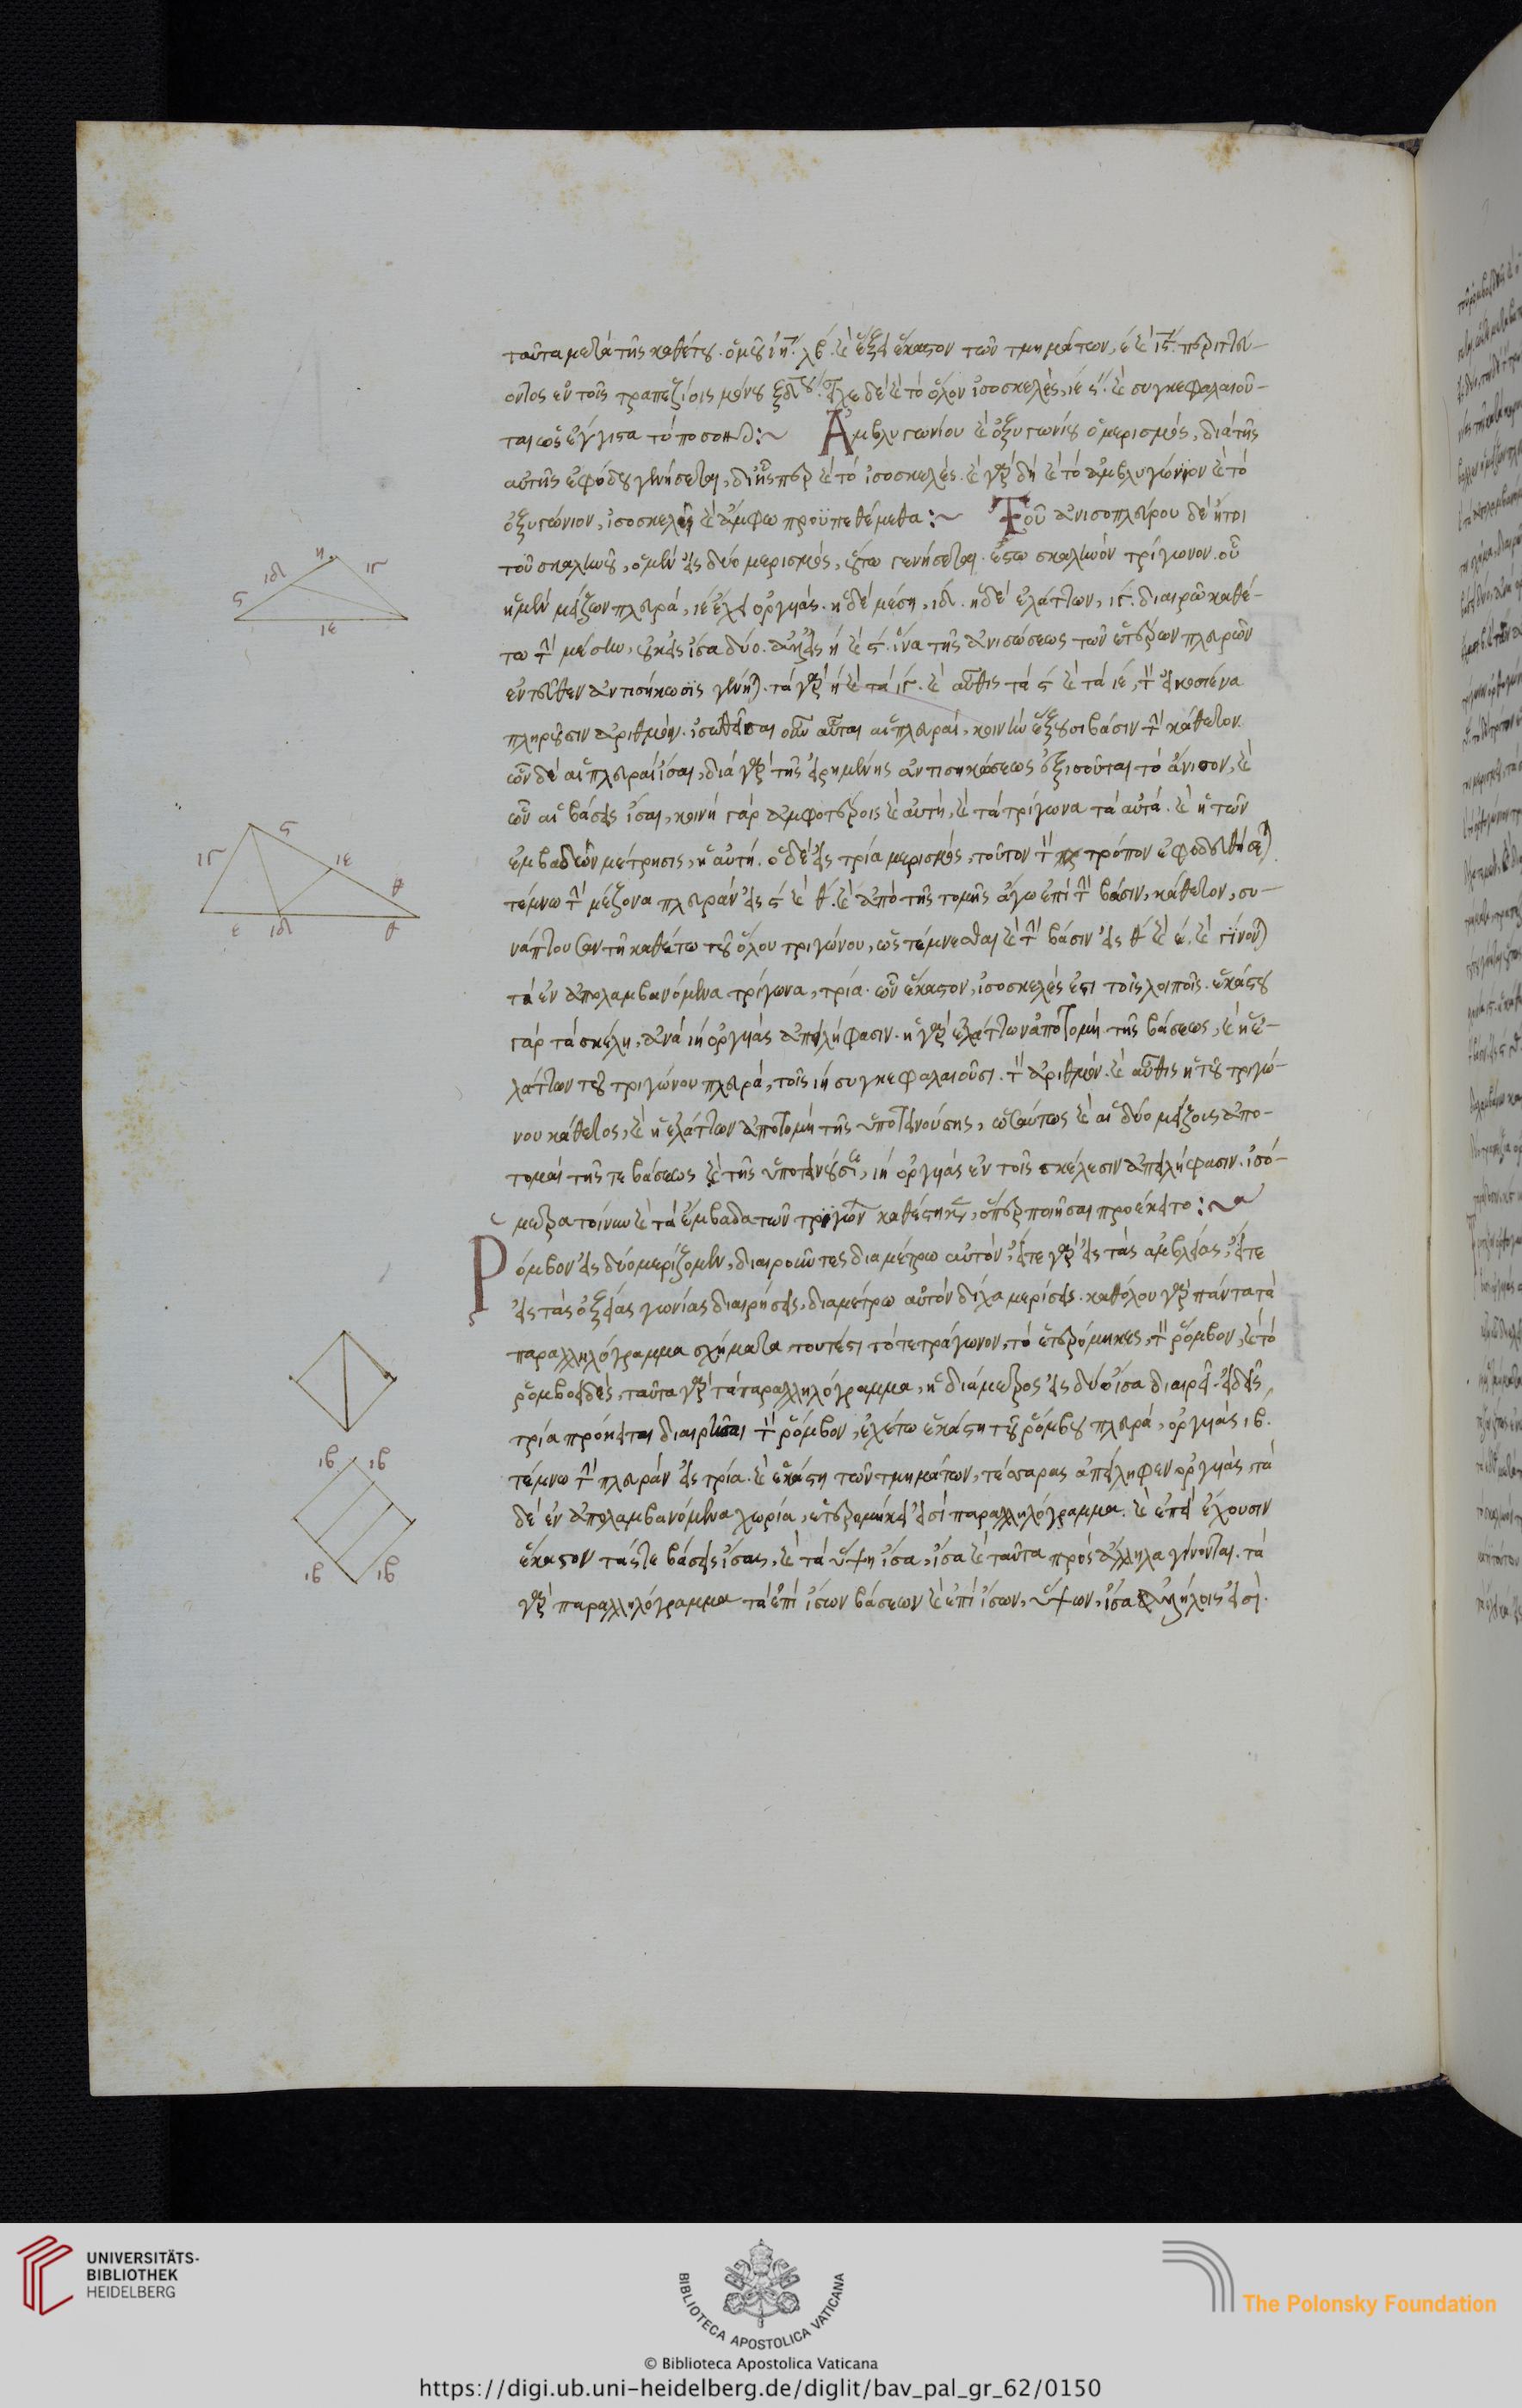 ταῦτα μετὰ τῆς καθέτου ὁμοῦ λβ. καὶ ἕξει ἕκαστον τῶν τμημάτων,
ἐν τοῖς τραπεζίοις μόνου δὲ καὶ τὸ ὅλον ἰσοσκελὲς, καὶ συγκεφαλαιοῦ-
ται ὡς ἔγγιστα τὸ ποσὸν :~ Ἀμβλυγωνίου καὶ ὀξυγωνίου ὁ μερισμὸς, διὰ τῆς
αὐτῆς ἐφόδου γενήσεται, δι' ἧσπερ καὶ τὸ ἰσοσκελές. καὶ γὰρ δὴ καὶ τὸ ἀμβλυγώνιον καὶ τὸ
ὀξυγώνιον, ἰσοσκελῆ καὶ ἄμφω προϋπεθέμεθα :~ Τοῦ ἀνισοπλεύρου δὲ ἤτοι
τοῦ σκαληνοῦ, ὁ μὲν εἰς δύο μερισμὸς, οὕτω γενήσεται. ἔστω σκαληνὸν τρίγωνον. οὗ
ἡ μὲν μείζων πλευρά, ιε ἕλκει ὀργυιάς. ἡ δὲ μέση, ιδ. ἡ δὲ ἐλάττων, ιγ. διαιρῶ καθέ-
τω τὴν μέσην, οὐκ εἰς ἴσα δύο. ἀλλ' εἰς η καὶ ϛ. ἵνα τῆς ἀνισώσεως τῶν ἑτέρων πλευρῶν
ἐντεῦθεν ἀντισήκωσις γένηται. τὰ γὰρ η καὶ τὰ ιγ. καὶ αὖθις τὰ ϛ καὶ τὰ ιε, τὸν εἰκοσιένα
πληροῦσιν ἀριθμόν. ἰσωθεῖσαι οὖν αὗται αἱ πλευραὶ, κοινὴν ἕξουσι βάσιν τὴν κάθετον.
ὧν δὲ αἱ πλευραὶ ἴσαι, διὰ γὰρ τῆς εἰρημένης ἀντισηκώσεως ἐξισοῦται τὸ ἄνισον, καὶ
ὧν αἱ βάσεις ἴσαι, κοινὴ γὰρ ἀμφοτέροις καὶ αὐτὴ, καὶ τὰ τρίγωνα τὰ αὐτά. καὶ ἡ τῶν
ἐμβαδῶν μέτρησις, ἡ αὐτή. ὁ δὲ εἰς τρία μερισμὸς, τοῦτον τὸν τρόπον ἐφοδευθήσεται
τέμνω τὴν μείζονα πλευρὰν εἰς ϛ καὶ θ. καὶ ἀπὸ τῆς τομῆς ἄγω ἐπὶ τὴν βάσιν, κάθετον, συ-
νάπτουσαν τῇ καθέτω τοῦ ὅλου τριγώνου, ὡς τέμνεσθαι καὶ τὴν βάσιν εἰς θ καὶ ε. καὶ γίνονται
τὰ ἐναπολαμβανόμενα τρίγωνα, τρία. ὧν ἕκαστον, ἰσοσκελές ἐστι τοῖς λοιποῖς. ἑκάστου
γὰρ τὰ σκέλη, ἀνὰ ιη ὀργυιὰς ἀπείληφασιν. ἡ γὰρ ἐλάττων ἀποτομὴ τῆς βάσεως, καὶ ἡ ἐ-
λάττων τοῦ τριγώνου πλευρά, τοῖς ιη συγκεφαλαιοῦσι τὸν ἀριθμόν. καὶ αὖθις ἡ τοῦ τριγώ-
νου κάθετος, καὶ ἡ ἐλάττων ἀποτομὴ τῆς ὑποτεινούσης, ὡσαύτως καὶ αἱ δύο μείζοις ἀπο-
τομαὶ τῆς τε βάσεως καὶ τῆς ὑποτεινούσης, ιη ὀργυιὰς ἐν τοῖς σκέλεσιν ἀπειλήφασιν. ἰσό-
μετρα τοίνυν καὶ τὰ ἐμβαδὰ τῶν τριγώνων καθέστηκεν, ὅπερ ποιῆσαι προέκειτο :~
Ῥόμβον εἰς δύο μερίζομεν, διαιροῦντες διαμέτρω αὐτὸν, εἴτε γὰρ εἰς τὰς ἀμβλείας, εἴτε
εἰς τὰς ὀξείας γωνίας διαιρήσεις, διαμέτρω αὐτὸν δίχα μερίσεις. καθόλου γὰρ πάντα τὰ
παραλληλόγραμμα σχήματα, τουτέστι τὸ τετράγωνον, τὸ ἑτερόμηκες, τὸν ῥόμβον, καὶ τὸ
ῥομβοειδὲς, ταῦτα γὰρ τὰ παραλληλόγραμμα, ἡ διάμετρος εἰς δύο ἴσα διαιρεῖ. εἰ δ' εἰς
τρία πρόκειται διαιρεῖσαι τὸν ῥόμβον, ἐχέτω ἑκάστη τοῦ ῥόμβου πλευρά, ὀργυιὰς ιβ.
τέμνω τὴν πλευρὰν εἰς τρία. καὶ ἑκάστη τῶν τμημάτων, τέσσαρας ἀπείληφεν ὀργυιὰς, τὰ
δὲ ἐναπολαμβανόμενα χωρία, ἑτερομήκει εἰσὶ παραλληλόγραμμα. καὶ ἐπεὶ ἔχουσιν
ἕκαστον τάς τε βάσεις ἴσας, καὶ τὰ ὕψη ἴσα, ἴσα καὶ ταῦτα πρὸς ἄλληλα γίνονται. τὰ
γὰρ παραλληλόγραμμα τὰ ἐπὶ ἴσων βάσεων καὶ ἐπὶ ἴσων ὕψων, ἴσα ἀλλήλοις εἰσί.
η
ιδ ιγ
ϛ
ιε
ϛ
ιγ ιε
θ
ε ιδ θ
ιβ ιβ
ιβ ιβ
UNIVERSITÄTS-
BIBLIOTHEK
HEIDELBERG
BIBLIOTECA APOSTOLICA VATICANA
The Polonsky Foundation
© Biblioteca Apostolica Vaticana
https://digi.ub.uni-heidelberg.de/diglit/bav_pal_gr_62/0150